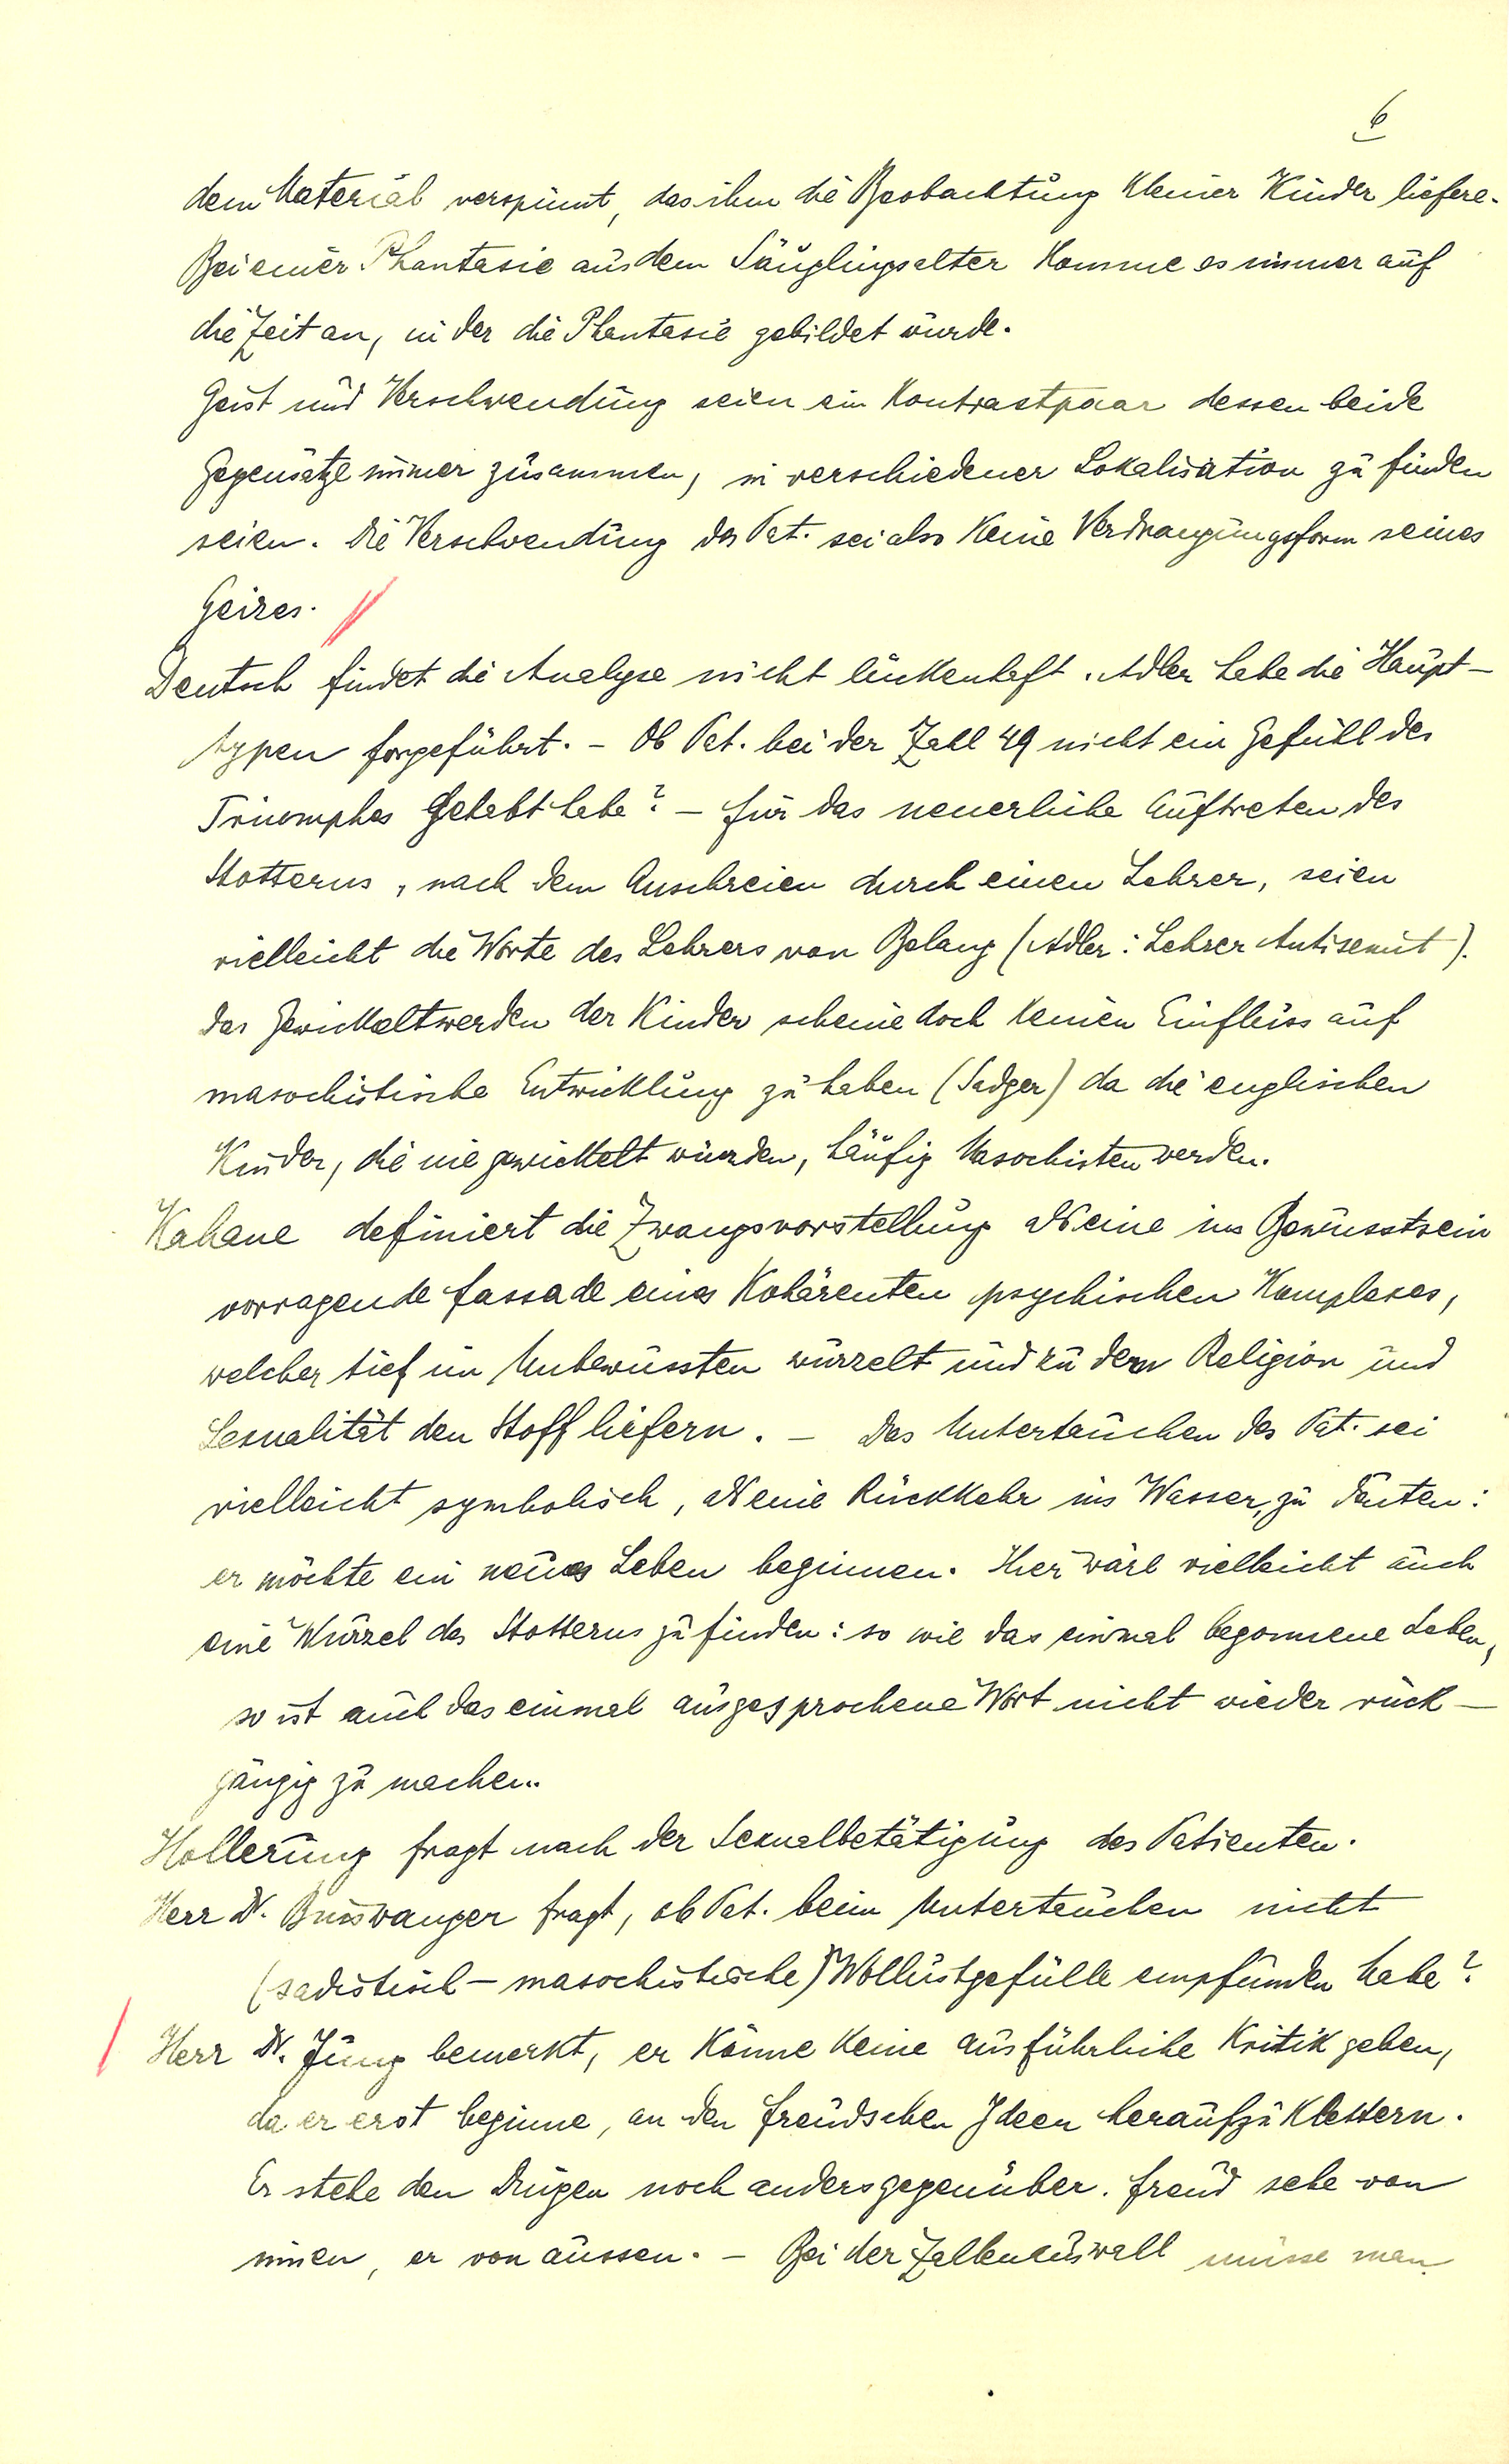 6
dem Material verspinnt, das ihm die Beobachtung kleiner Kinder liefere.
Bei einer Phantasie aus dem Säuglingsalter komme es immer auf
die Zeit an, in der die Phantasie gebildet wurde.
Geist und Verschwendung seien ein Kontrastpaar dessen beide
Gegensätze immer zusammen, in verschiedener Lokalisation zu finden
seien. Die Verschwendung des Pat. sei also keine Verdrängungsform seines
Geizes.
Deutsch findet die Analyse nicht lückenhaft. Adler habe die Haupt-
typen forgeführt. – Ob Pat. bei der Zahl 49 nicht ein Gefühl des
Triumphes gehabt habe? – für das neuerliche Auftreten des
Stotterns, nach dem Anschreien durch einen Lehrer, seien
vielleicht die Worte des Lehrers von Belang (Adler: Lehrer Antisemit).
Das Gewickeltwerden der Kinder scheine doch keinen Einfluss auf
masochistische Entwicklung zu haben (Sadger) da die englischen
Kinder, die nie gewickelt würden, häufig Masochisten werden.
Kahane definiert die Zwangsvorstellung als eine ins Bewusstsein
vorragende Fassade eines kohärenten psychischen Komplexes,
welcher tief im Unbewussten wurzelt und zu dem Religion und
Sexualität den Stoff liefern. – Das Untertauchen des Pat. sei
vielleicht symbolisch, als eine Rückkehr ins Wasser, zu deuten:
er möchte ein neues Leben beginnen. Hier wäre vielleicht auch
eine Wurzel des Stotterns zu finden: so wie das einmal begonnene Leben,
so ist auch das einmal ausgesprochene Wort nicht wieder rück-
gängig zu machen.
Hollerung fragt nach der Sexualbetätigung des Patienten.
Herr Dr. Binswanger fragt, ob Pat. beim Untertauchen nicht
(sadistisch – masochistische) Wollustgefühle empfunden habe?
Herr Dr. Jung bemerkt, er könne keine ausführliche Kritik geben,
da er erst beginne, an den Freudschen Ideen heraufzuklettern.
Er stehe den Dingen noch anders gegenüber. Freud sehe von
innen, er von aussen. – Bei der Zahlenauswahl müsse man